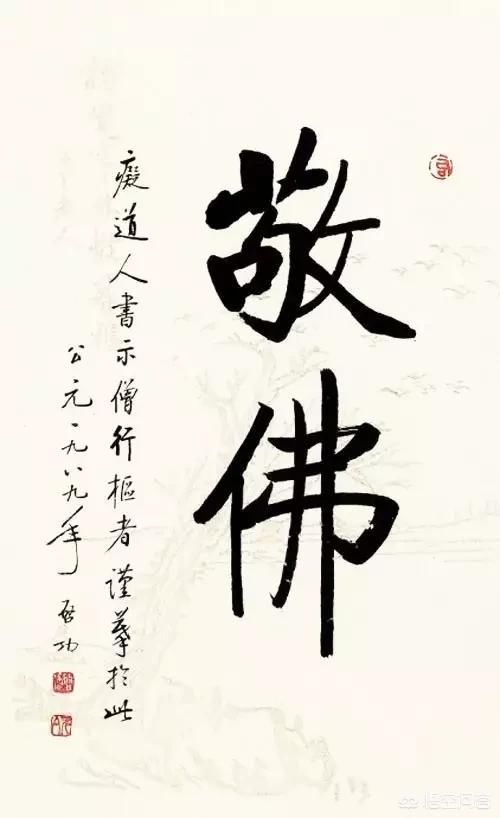 敬佛
癡道人書示僧行樞者謹摹於此
公元一九八九年 啟功
悟空问答